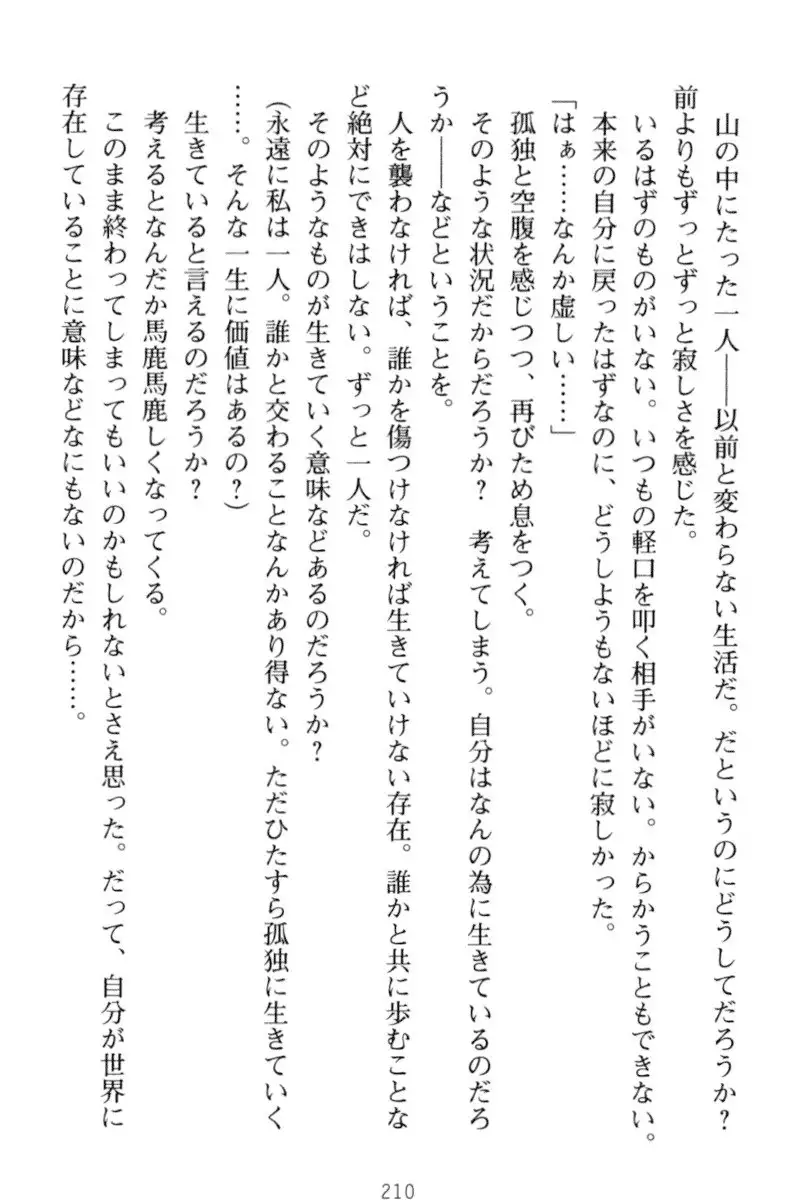 山の中にたった一人――以前と変わらない生活だ。だというのにどうしてだろうか？
前よりもずっとずっと寂しさを感じた。
　いるはずのものがいない。いつもの軽口を叩く相手がいない。からかうこともできない。
　本来の自分に戻ったはずなのに、どうしようもないほどに寂しかった。
「はぁ……なんか虚しい……」
　孤独と空腹を感じつつ、再びため息をつく。
　そのような状況だからだろうか？　考えてしまう。自分はなんの為に生きているのだろ
うか――などということを。
　人を襲わなければ、誰かを傷つけなければ生きていけない存在。誰かと共に歩むことな
ど絶対にできはしない。ずっと一人だ。
　そのようなものが生きていく意味などあるのだろうか？
（永遠に私は一人。誰かと交わることなんかあり得ない。ただひたすら孤独に生きていく
……。そんな一生に価値はあるの？）
　生きていると言えるのだろうか？
　考えるとなんだか馬鹿馬鹿しくなってくる。
　このまま終わってしまってもいいのかもしれないとさえ思った。だって、自分が世界に
存在していることに意味などなにもないのだから……。
210